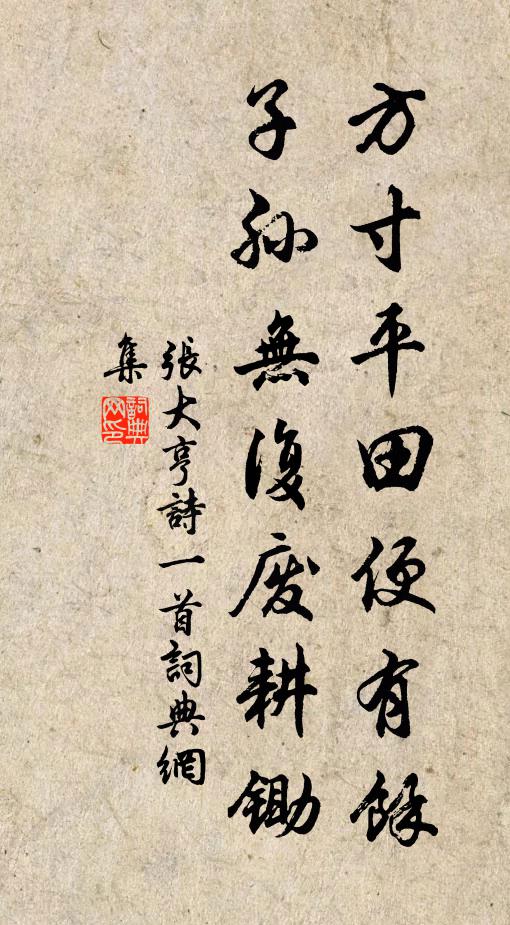 方寸平田便有餘
子孫無復廢耕鋤
張大亨詩一首詞典網
集
詞典網印